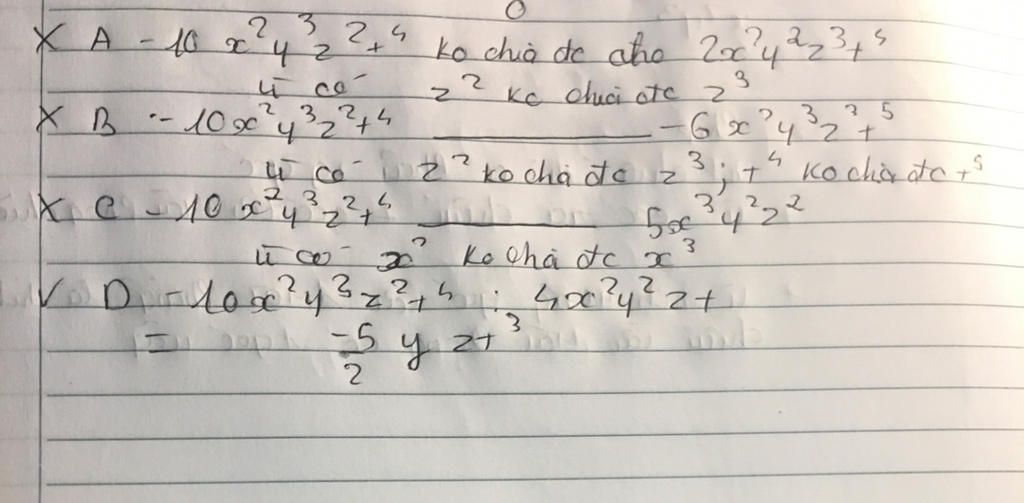 X A -10 x²y³z²t⁴ ko chia đc cho 2x²y²z³t⁴
vì có z² ko chia đc z³
X B -10x²y³z²t⁴ ________ -6x²y³z³t⁵
vì có z² ko chia đc z³; t⁴ ko chia đc t⁵
X C -10x²y³z²t⁴ ________ 5x³y²z²
vì có x² ko chia đc x³
✓ D -10x²y³z²t⁴ : 4x²y²zt
= -5/2 y zt³